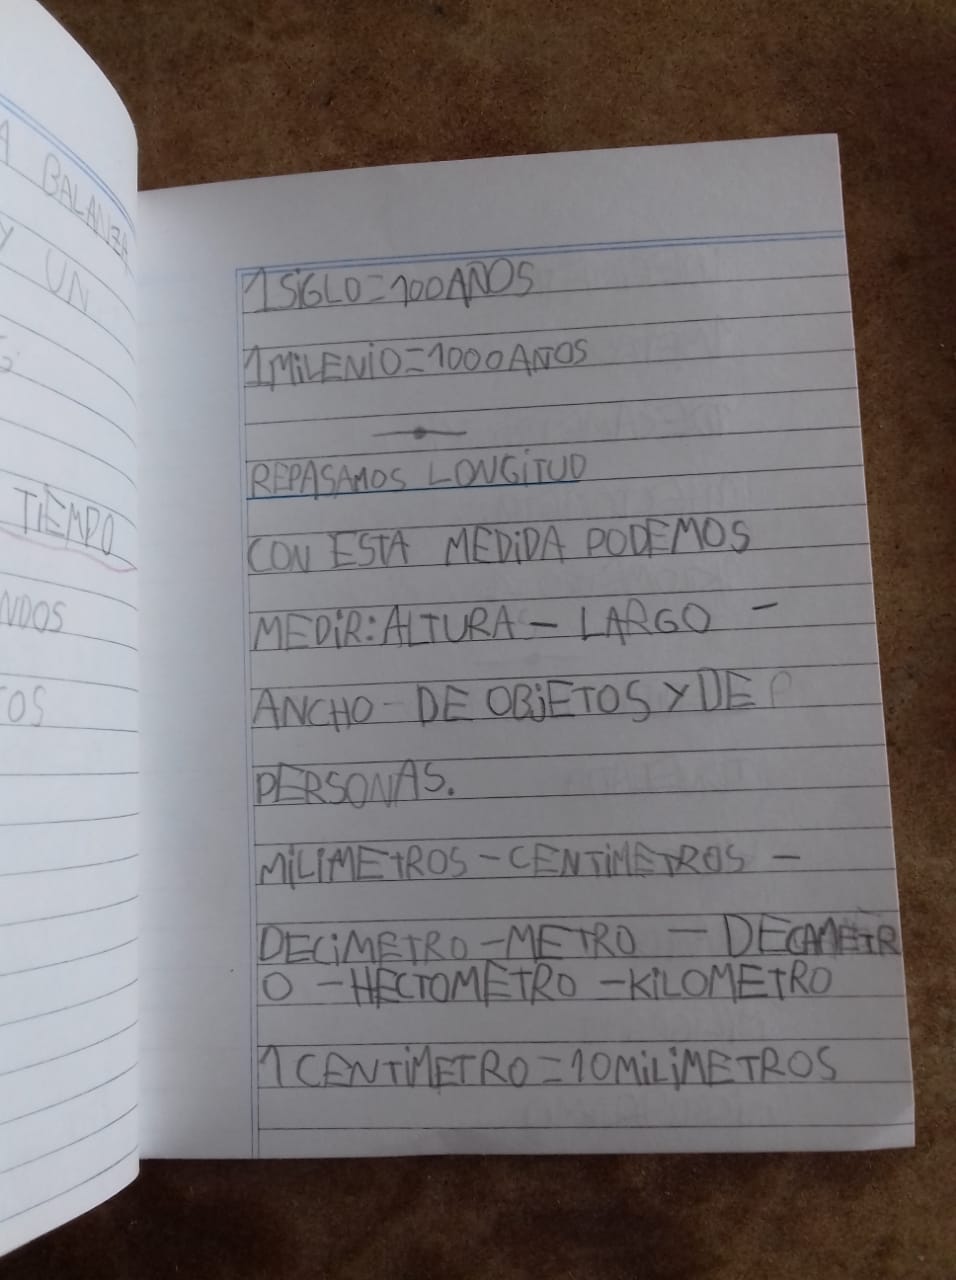 A BALANZA
Y UN
TIEMPO
NDOS
TOS
1 SIGLO=100 AÑOS
1 MILENIO=1000 AÑOS
REPASAMOS LONGITUD
CON ESTA MEDIDA PODEMOS
MEDIR: ALTURA - LARGO -
ANCHO - DE OBJETOS Y DE P
PERSONAS.
MILIMETROS - CENTIMETROS -
DECIMETRO - METRO - DECAMETR
O - HECTOMETRO - KILOMETRO
1 CENTIMETRO = 10 MILIMETROS